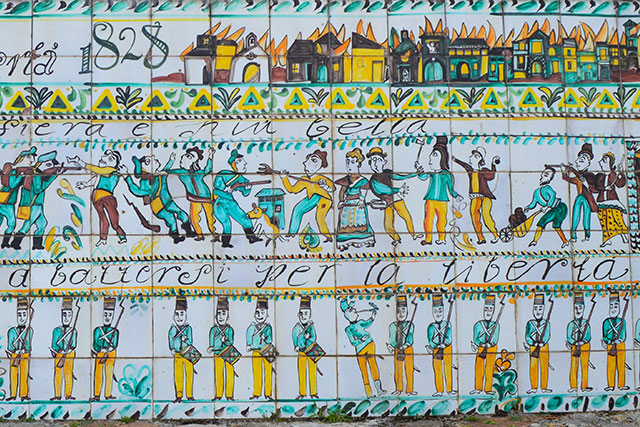 ertá 1828
fiera e bella
a battersi per la liberta